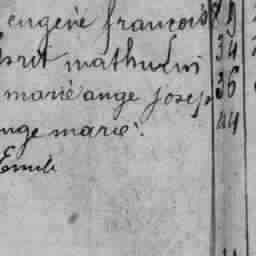 eugéne françois 29
sprit mathurin 34
marie ange josep 36
ange marie. 44
Emile